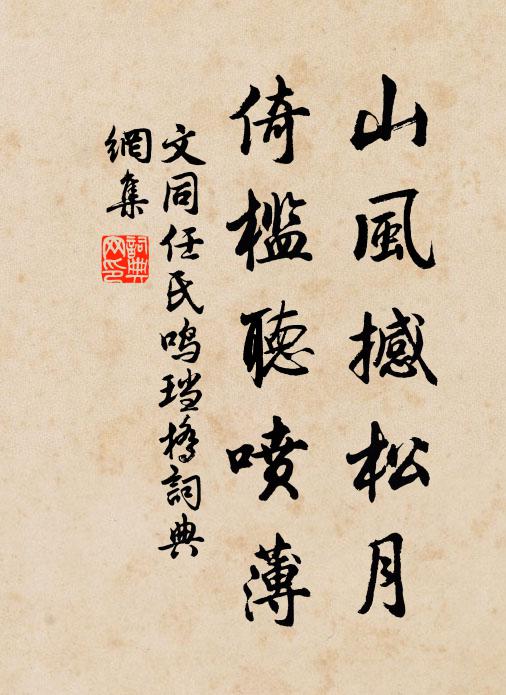 山風撼松月
倚檻聽噴薄
文同任氏鳴璫橋詞典
網集
詞典網印